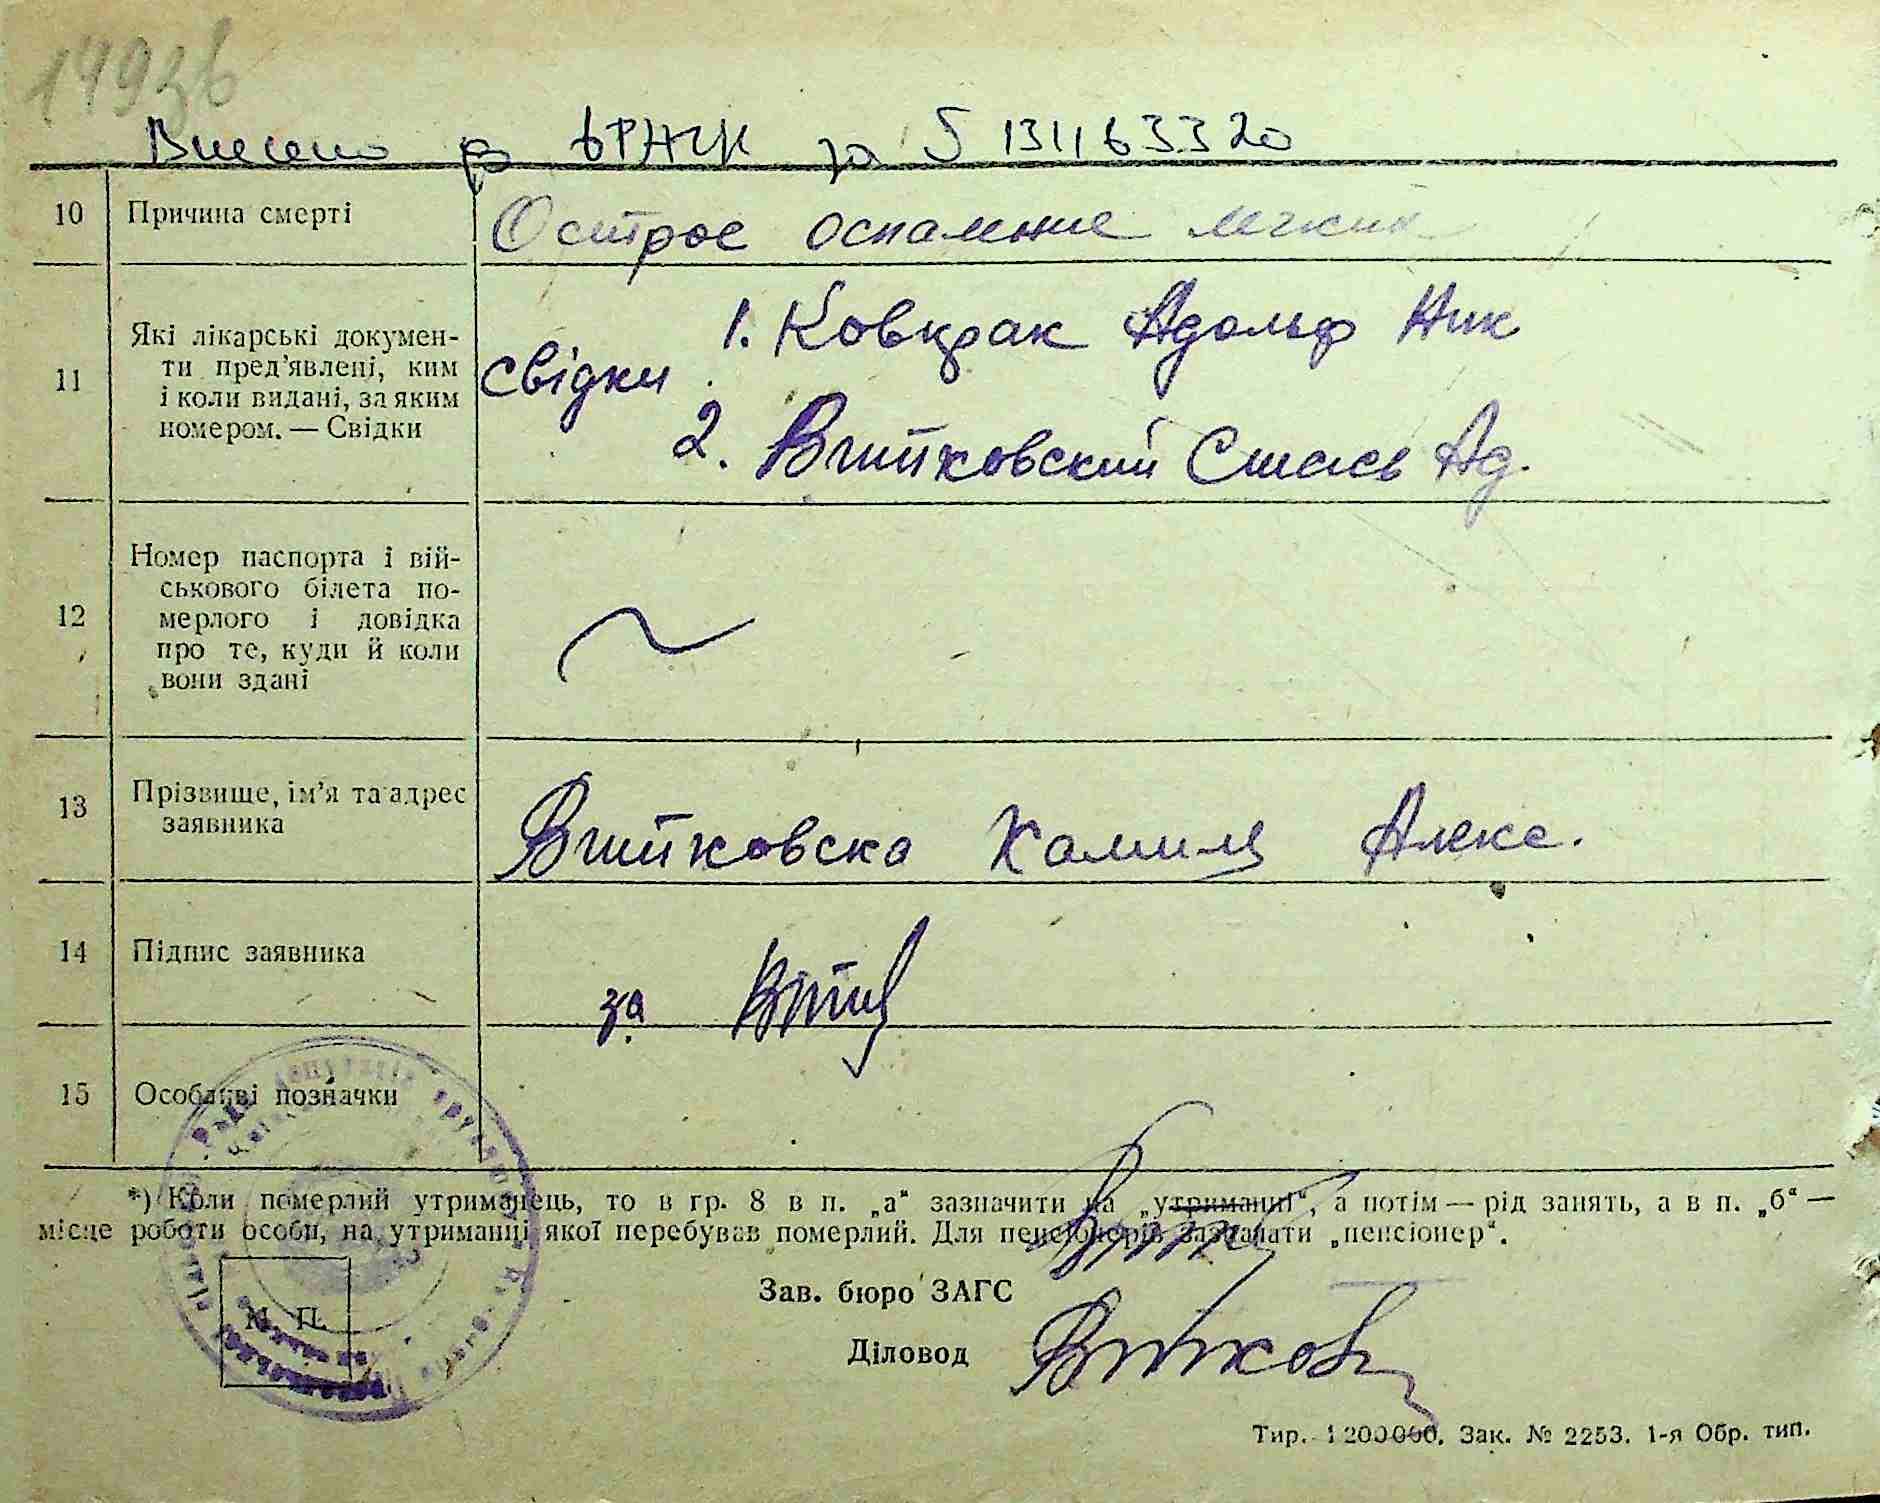 149зв
Внесено в ДРАЦС за № 131163320
10 Причина смерті Острое оспаление легких
11 Які лікарські докумен-
ти пред’явлені, ким
і коли видані, за яким
номером. — Свідки
свідки 1. Ковцрак Адольф Ник
2. Витковский Стась Ад.
12 Номер паспорта і вій-
ськового білета по-
мерлого і довідка
про те, куди й коли
вони здані
13 Прізвище, ім’я та адрес
заявника
Витковска Камиля Алекс.
14 Підпис заявника за
15 Особливі позначки
*) Коли померлий утриманець, то в гр. 8 в п. „а“ зазначити на „утриманні“, а потім — рід занять, а в п. „б“ —
місце роботи особи, на утриманні якої перебував померлий. Для пенсіонерів зазначати „пенсіонер“.
Зав. бюро ЗАГС
М. П.
Діловод
Тир. 1 200000. Зак. № 2253. 1-я Обр. тип.